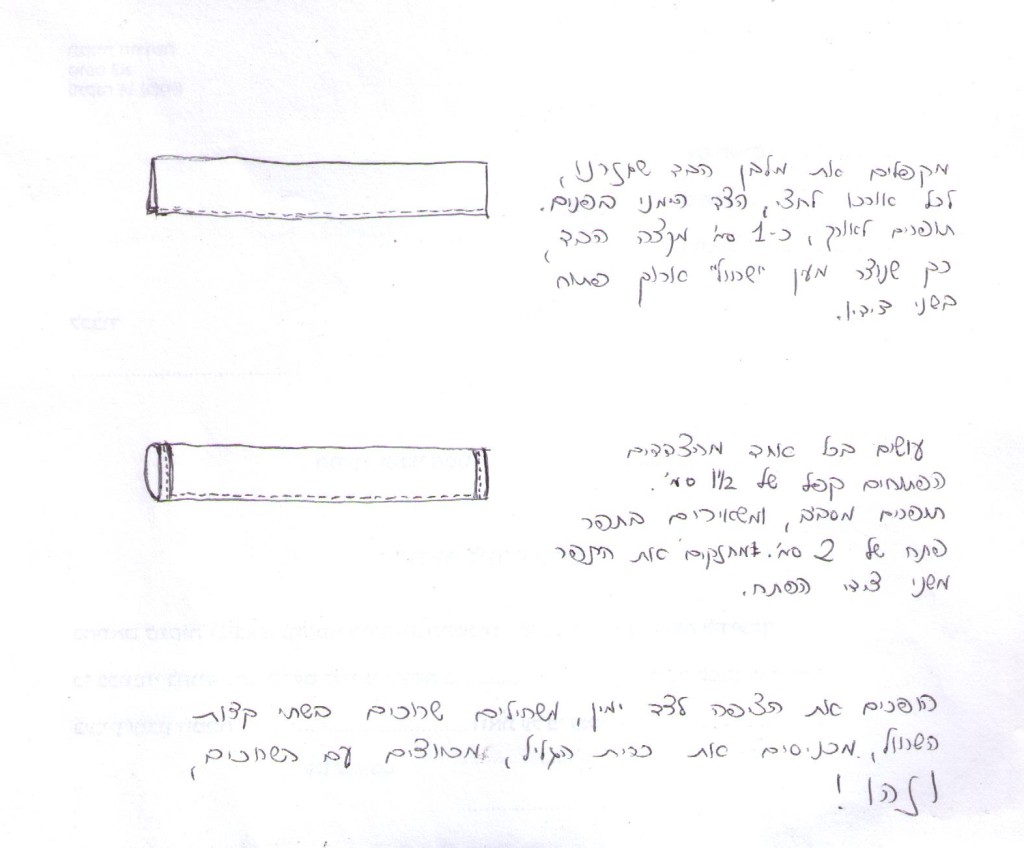 מקפלים את מלבן הבד שגזרנו,
לכל אורכו לחצי, הצד הימני בפנים.
תופרים לאורך, כ-1 סמ' מקצה הבד,
כך שנוצר מעין "שרוול" ארוך פתוח
בשני צידיו.
עושים בכל אחד מהצדדים
הפתוחים קפל של 1/2 1 סמ'.
תופרים מסביב, ומשאירים בתפר
פתח של 2 סמ'. מחזקים את התפר
משני צידי הפתח.
הופכים את הציפה לצד ימין, משחילים שרוכים בשתי קצוות
השרוול, מכניסים את כרית הגליל, מכווצים עם השרוכים,
וזהו!